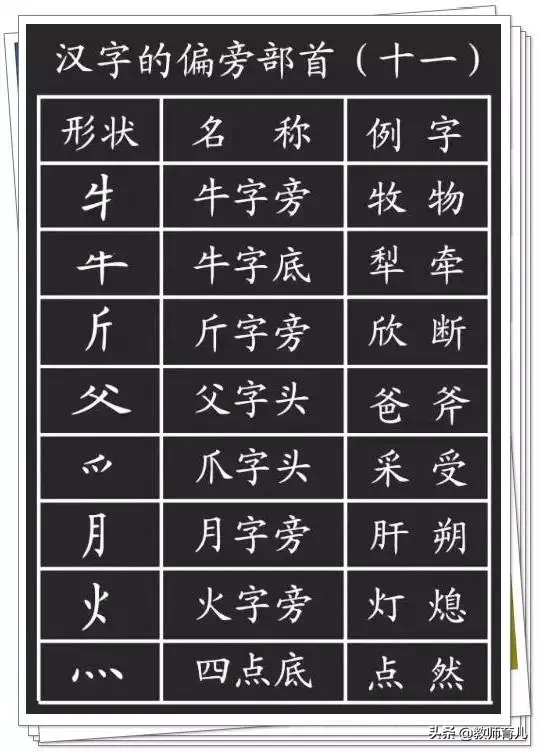 汉字的偏旁部首（十一）
形状 名 称 例 字
牜 牛字旁 牧 物
牛 牛字底 犁 牵
斤 斤字旁 欣 断
父 父字头 爸 斧
爫 爪字头 采 受
月 月字旁 肝 朔
火 火字旁 灯 熄
灬 四点底 点 然
头条 @教师育儿